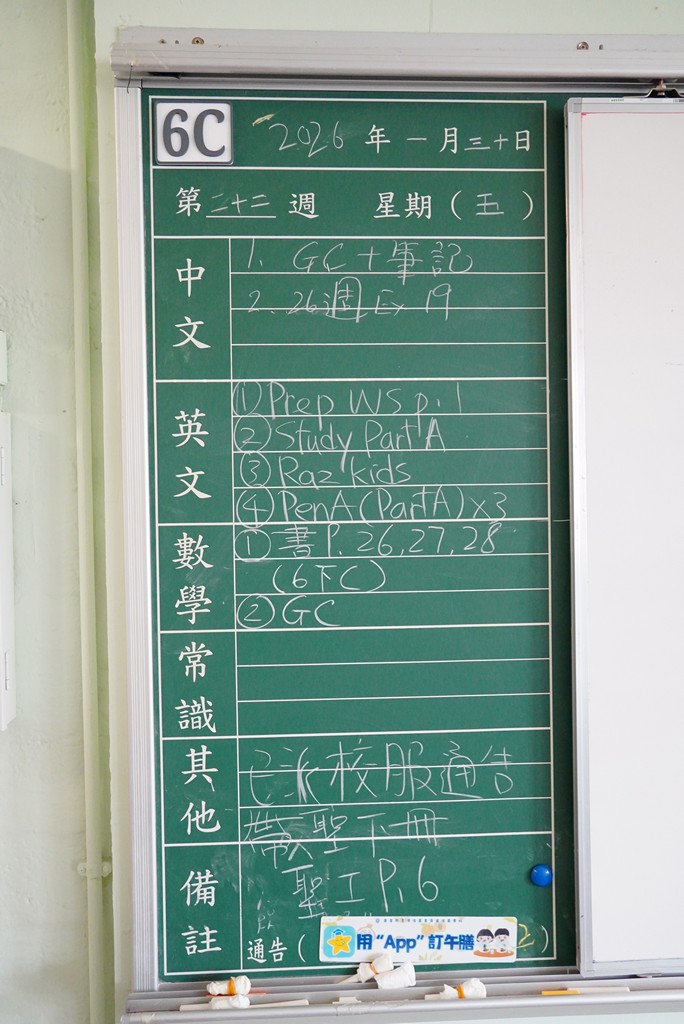 6C
2026年一月三十日
第二十二週 星期(五)
中文
1. GC+筆記
2. 26週 Ex 19
英文
① Prep WS p.1
② Study Part A
③ Raz kids
④ Pen A (Part A) x3
數學
① 書 P.26,27,28
(6下C)
② GC
常識
其他
已派校服通告
帶聖下冊
備註
聖工 P.6
通告(
用“App”訂午膳
2)